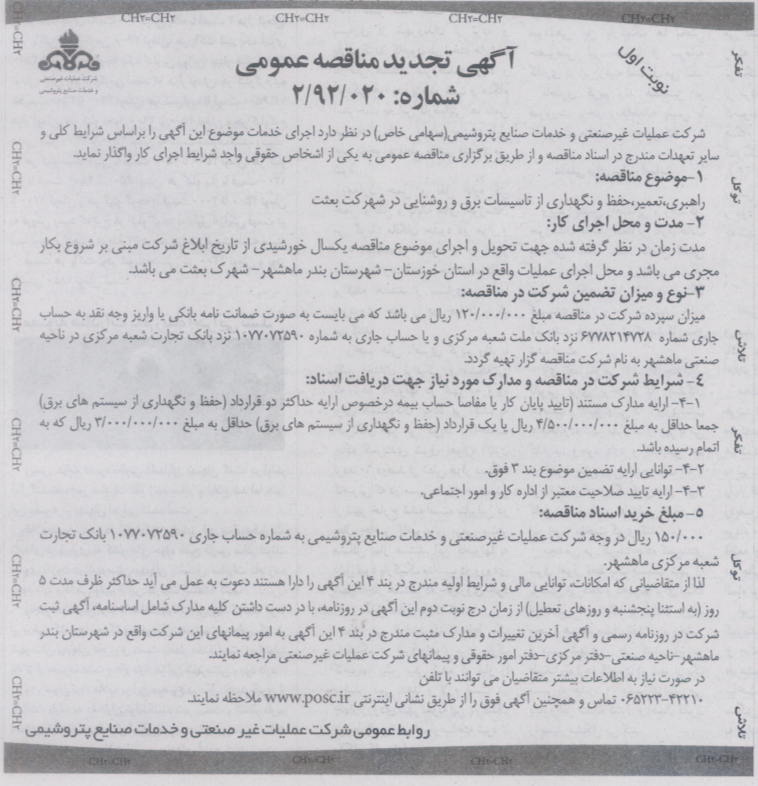 CH۲=CH۲ CH۲=CH۲ CH۲=CH۲ CH۲=CH۲
نوبت اول
آگهی تجدید مناقصه عمومی
شماره: ۲/۹۲/۰۲۰
شرکت عملیات غیرصنعتی
و خدمات صنایع پتروشیمی
شرکت عملیات غیرصنعتی و خدمات صنایع پتروشیمی(سهامی خاص) در نظر دارد اجرای خدمات موضوع این آگهی را براساس شرایط کلی و
سایر تعهدات مندرج در اسناد مناقصه و از طریق برگزاری مناقصه عمومی به یکی از اشخاص حقوقی واجد شرایط اجرای کار واگذار نماید.
۱-موضوع مناقصه:
راهبری،تعمیر،حفظ و نگهداری از تاسیسات برق و روشنایی در شهرکت بعثت
۲- مدت و محل اجرای کار:
مدت زمان در نظر گرفته شده جهت تحویل و اجرای موضوع مناقصه یکسال خورشیدی از تاریخ ابلاغ شرکت مبنی بر شروع بکار
مجری می باشد و محل اجرای عملیات واقع در استان خوزستان- شهرستان بندر ماهشهر- شهرک بعثت می باشد.
۳-نوع و میزان تضمین شرکت در مناقصه:
میزان سپرده شرکت در مناقصه مبلغ ۱۲۰/۰۰۰/۰۰۰ ریال می باشد که می بایست به صورت ضمانت نامه بانکی یا واریز وجه نقد به حساب
جاری شماره ۶۷۷۸۲۱۴۷۲۸ نزد بانک ملت شعبه مرکزی و یا حساب جاری به شماره ۱۰۷۷۰۷۲۵۹۰ نزد بانک تجارت شعبه مرکزی در ناحیه
صنعتی ماهشهر به نام شرکت مناقصه گزار تهیه گردد.
۴- شرایط شرکت در مناقصه و مدارک مورد نیاز جهت دریافت اسناد:
۴-۱- ارایه مدارک مستند (تایید پایان کار یا مفاصا حساب بیمه درخصوص ارایه حداکثر دو قرارداد (حفظ و نگهداری از سیستم های برق)
جمعا حداقل به مبلغ ۴/۵۰۰/۰۰۰/۰۰۰ ریال یا یک قرارداد (حفظ و نگهداری از سیستم های برق) حداقل به مبلغ ۳/۰۰۰/۰۰۰/۰۰۰ ریال که به
اتمام رسیده باشد.
۴-۲- توانایی ارایه تضمین موضوع بند ۳ فوق.
۴-۳- ارایه تایید صلاحیت معتبر از اداره کار و امور اجتماعی.
۵- مبلغ خرید اسناد مناقصه:
۱۵۰/۰۰۰ ریال در وجه شرکت عملیات غیرصنعتی و خدمات صنایع پتروشیمی به شماره حساب جاری ۱۰۷۷۰۷۲۵۹۰ بانک تجارت
شعبه مرکزی ماهشهر.
لذا از متقاضیانی که امکانات، توانایی مالی و شرایط اولیه مندرج در بند ۴ این آگهی را دارا هستند دعوت به عمل می آید حداکثر ظرف مدت ۵
روز (به استثنا پنجشنبه و روزهای تعطیل) از زمان درج نوبت دوم این آگهی در روزنامه، با در دست داشتن کلیه مدارک شامل اساسنامه، آگهی ثبت
شرکت در روزنامه رسمی و آگهی آخرین تغییرات و مدارک مثبت مندرج در بند ۴ این آگهی به امور پیمانهای این شرکت واقع در شهرستان بندر
ماهشهر-ناحیه صنعتی-دفتر مرکزی-دفتر امور حقوقی و پیمانهای شرکت عملیات غیرصنعتی مراجعه نمایند.
در صورت نیاز به اطلاعات بیشتر متقاضیان می توانند با تلفن
۰۶۵۲۲۳-۴۲۲۱۰ تماس و همچنین آگهی فوق را از طریق نشانی اینترنتی www.posc.ir ملاحظه نمایند.
روابط عمومی شرکت عملیات غیر صنعتی و خدمات صنایع پتروشیمی
تفکر
توکل
تلاش
تفکر
توکل
تلاش
CH۲=CH۲
CH۲=CH۲
CH۲=CH۲
CH۲=CH۲
CH۲=CH۲
CH۲=CH۲
CH۲=CH۲ CH۲=CH۲ CH۲=CH۲ CH۲=CH۲